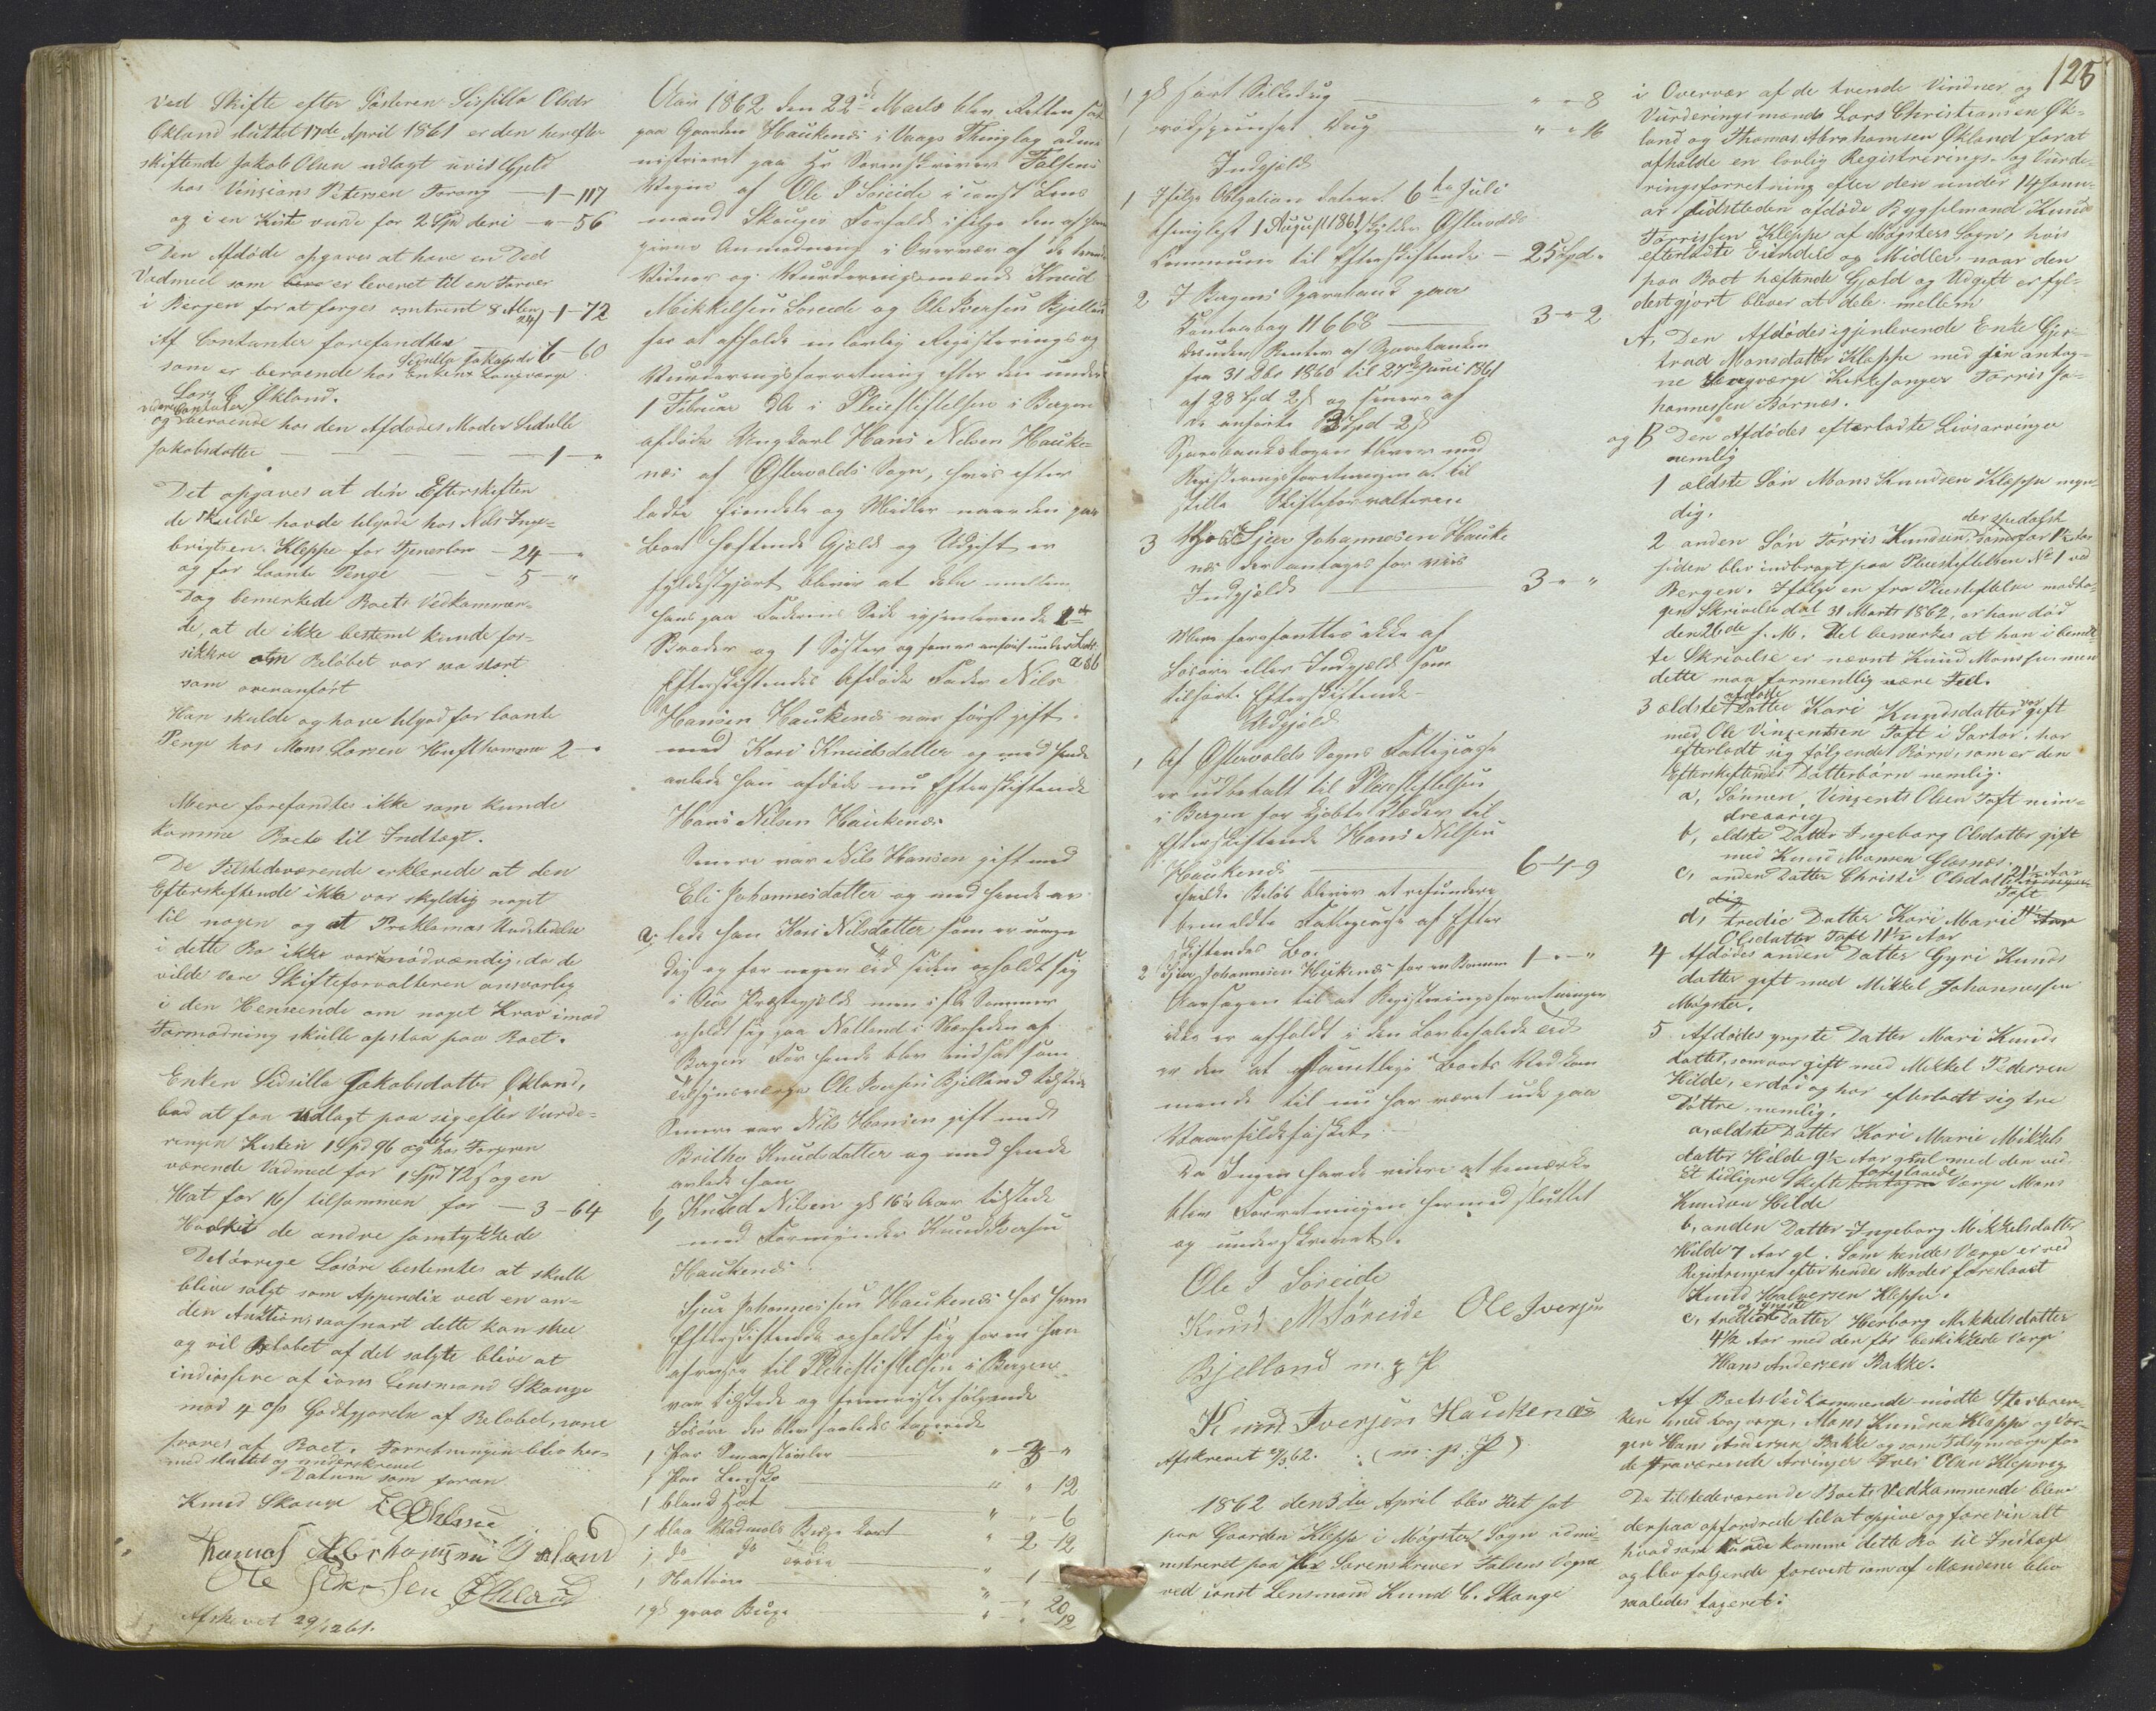 Ved Skifte efter Søsteren Sissilla Olsdr
Økland sluttet 17de April 1861 er den herefter
skiftende Jakob Olsen udlagt uvis Gjeld
hos Vinzians Petersen Torang — 1 - 117
og i en Kiste vurd. for 2 Spd deri - " - 56
Den Afdøde opgaves at have en Deel
Vadmeel som er leveret til en Farver
i Bergen for at farges omtrent 8 Alen 24/ - 1 - 72
Af Contanter forefandtes — 6 - 60
som er beroende hos Enken Sissilla Jakobsdr Laugværge
Lars C Økland.
videre Contanter
og beroende hos den Afdødes Moder Sidselle
Jakobsdatter — 1 - "
Det opgaves at den Efterskiften
de skulde havde tilgode hos Nils Inge-
brigtsen Kleppe for Tjenerløn - 24 - "
og for laante Penge — 5 - "
Dog bemerkede Boets Vedkommen-
de, at de ikke bestemt kunde for-
sikkre om Beløbet var saa stort
som ovenanført
Han skulde og have tilgod for laante
Penge hos Mons Larsen Hufthammer 2 - "
Mere forefandtes ikke som kunde
komme Boet til Indtægt.
De Tilstedeværende erklærede at den
Efterskiftende ikke var skyldig noget
til nogen og at Proklamas Udstedelse
i dette Bo ikke var nødvændig, da de
vilde være Skifteforvalteren ansvarlig
i den Henseende om noget Krav imod
Formodning skulle opstaa paa Boet.
Enken Sidsilla Jakobsdatter Økland,
bad at faa udlagt paa sig efter Vurde-
ringen Kisten 1 Spd 96 og det hos Farveren
værende Vadmel for 1 Spd 72 s og en
Hat for 16/ tilsammen for — 3 - 64
Hvilket de andre samtykkede
Det øvrige Løsøre bestemtes at skulle
blive solgt som Appendix ved en an-
den Auktion, saasnart dette kan skee
og vil Beløbet af det solgte blive at
indkassere af const Lensmand Skauge
mod 4 % Godtgjørelse af Beløbet,
svares af Boet. Forretningen blev her-
med sluttet og underskrevet
Datum som foran
Knud Skauge
Thomas Abrahamsen Økland
Ole Pedersen Økland
Afskrevet 29/12 61.
Aar 1862 den 22de Marts blev Retten sat
paa Gaarden Haukenæs i Vaags Thinglag admi
nistreret paa Hr Sorenskriver Falsens
Vegne af Ole P Søreide i const Lens
mand Skauges Forfald ifølge den af ham
givne Anmodning i Overvær af de tvende
Vidner og Vurderingsmænd Knud
Mikkelsen Søreide og Ole Iversen Bjelland
for at afholde en lovlig Registrerings og
Vurderingsforretning efter den under
1 Februar d A i Pleiestiftelsen i Bergen
afdøde Ungkarl Hans Nilsen Hauke-
næs af Østervolds Sogn, hvis efter
ladte Eiendele og Midler naar den paa
Boet heftende Gjæld og Udgift er
fyldestgjort bliver at dele mellem
hans paa Faderens Side igjenlevende 1
Broder og 1 Søster og som er anført under Litr
a & b
Efterskiftendes Afdøde Fader Nils
Hansen Haukenæs var først gift
med Kari Knudsdatter og med hende
avlede han afdøde nu Efterskiftende
Hans Nilsen Haukenæs
Senere var Nils Hansen gift med
Eli Johannesdatter og med hende av
a, lede han Kari Nilsdatter som er myn
dig og for nogen Tid siden opholdt sig
i Præstegjeld men i f A Sommer
opholdt sig paa Natland i Nærheden af
Bergen For hende blev indsat som
Tilsynsværge Ole Iversen Bjelland tilstede
Senere var Nils Hansen gift med
Brithe Knudsdatter og med hende
avlede han
b, Knud Nilsen gl 16½ Aar tilstede
med Formynder Knud Iversen
Haukenæs.
Sjur Johannessen Haukenæs hos hvem
Efterskiftende opholdt sig forend han
afreiste til Pleiestiftelsen i Bergen
var tilstede og fremviste følgende
Løsøre der blev saaledes taxerede
1 Par Smaastøvler — " - 3 - "
1 Par — " " 12
1 bland Hat — " - " - 6
1 blaa Vadmels Buxe kort — " 2 12
1 do do Trøie
1 — " 1
1 gl graa Buxe — " - " 20
" " 12
1 gl sort Silketrug — " - " - 8
1 Dug — " - " 16
Indgjæld
1 Ifølge Obligation dateret 6te Juli
thinglæst 1 August 1861 skylder Østervolds
Commune til Efterskiftende — 25 Spd "
2 I Bergens Sparebank paa
Contrabog 11668 — 3 - " 2
desuden Renter af Sparebanken
fra 31 Dbr 1860 til 21 Juni 1861
af 28 Spd 2 s og senere af
de anførte 3 Spd 2 s
Sparebanksbogen bliver med
Registreringsforretningen at til
stille Skifteforvalteren
3 Hos Sjur Johannesen Hauke
næs der antages for vis
Indgjæld — 3 - " "
Mere forefandtes ikke af
Løsøre eller Indgjæld som
tilhørte Efterskiftende
Udgjæld
1 Af Østervolds Sogns Fattigcasse
er udbetalt til Pleiestiftelsen
i Bergen for kjøbte Klæder til
Efterskiftende Hans Nilsen
Haukenæs — 6 - 4 - 9
hvilke Beløb bliver at refundere
bemeldte Fattigcasse af Efter
skiftendes Bo.
2 Sjur Johannesen Haukenæs for en 1 - " - "
Aarsagen til at Registreringsforretningen
ikke er afholdt i den Lovbefalede Tid
er den at samtlige Boets Vedkom
mende til nu har været ude paa
Vaarsildfisket.
Da Ingen havde videre at bemærke
blev Forretningen hermed sluttet
og underskrevet.
Ole P Søreide
Knud M Søreide Ole Iversen
Bjelland m. p. P
Knud Iversen Haukenæs
Afskrevet 62. (m. p. P)
1862 den 3die April blev Ret sat
paa Gaarden Kleppe i Møgster Sogn admi-
nistreret paa Hr Sorenskriver Falsens Vegne
ved const Lensmand Knud C. Skauge
125
i Overvær af de tvende Vindner og
Vurderingsmænd Lars Christiansen Øk-
land og Thomas Abrahamsen Økland for at
afholde en lovlig Registrerings- og Vurde-
ringsforretning efter den under 14 Janu-
ar sidstleden afdøde Bygselmand Knud
Torrissen Kleppe af Møgsters Sogn, hvis
efterladte Eiendele og Midler, naar den
paa Boet hæftende Gjæld og Udgift er fyl-
destgjort bliver at dele mellem
A, Den Afdødes igjenlevende Enke Gjer-
trud Monsdatter Kleppe med sin antag-
ne Laugværge Kirkesanger Torris Jo-
hannessen Børnes.
og B Den Afdødes efterladte Livsarvinger
nemlig
1 ældste Søn Mons Knudsen Kleppe myn
dig.
2 anden Søn Torris Knudsen, der spedalsk som for 1½ Aar
siden blev indbragt paa Pleiestiftelsen No 1 ved
Bergen. Ifølge en fra Pleiestiftelsen modta-
gen Skrivelse dat 31 Marts 1862, er han død
den 26de f. M. Det bemerkes at han i bemeld
te Skrivelse er nævnt Knud Monssen, men
dette maa formentlig være Feil.
3 ældste afdøde Datter Kari Knudsdatter var gift
med Ole Vinzentsen Toft i Sartor. har
efterladt sig følgende Børn, som er den
Efterskiftendes Datterbørn nemlig.
a, Sønnen, Vinzents Olsen Toft min-
dreaarig
b, ældste Datter Ingeborg Olsdatter gift
med Knud Monsen Glesnæs.
c, anden Datter Christi Olsdatter 21½ Aar
Toft
d, tredie Datter Kari Marie
Olsdatter Toft 11½ Aar
4 Afdødes anden Datter Gyri Knuds
datter gift med Mikkel Johannessen
Møgster.
5 Afdødes yngste Datter Mari Knuds
datter, som var gift med Mikkel Pedersen
Hilde, er død og har efterladt sig tre
Døttre, nemlig,
a, ældste Datter Kari Marie Mikkels
datter Hilde 9½ Aar gml med den ved
et tidligere Skifte foreslaaede Værge Mons
Knudsen Hilde
b, anden Datter Ingeborg Mikkelsdatter
Hilde 7 Aar gl. Som hendes Værge er ved
Registreringen efter hendes Moder foreslaaet
Knud Halvorsen Kleppe.
c, tredie og yngste Datter Herborg Mikkelsdatter
4½ Aar med den før beskikkede Værge
Hans Andersen Bakke.
Af Boets Vedkommende mødte Sterboen-
ken med Laugværge, Mons Knudsen Kleppe og Vær-
gen Hans Andersen Bakke og som Tilsynsværge for
de fraværende Arvinger Iver Olsen Klepsvig
De tilstedeværende Boets Vedkommende bleve
derpaa opfordrede til at opgive og forevise alt
hvad som kunde komme dette Bo til Indtægt
og blev følgende forevist som af Mændene blev
saaledes taxeret: